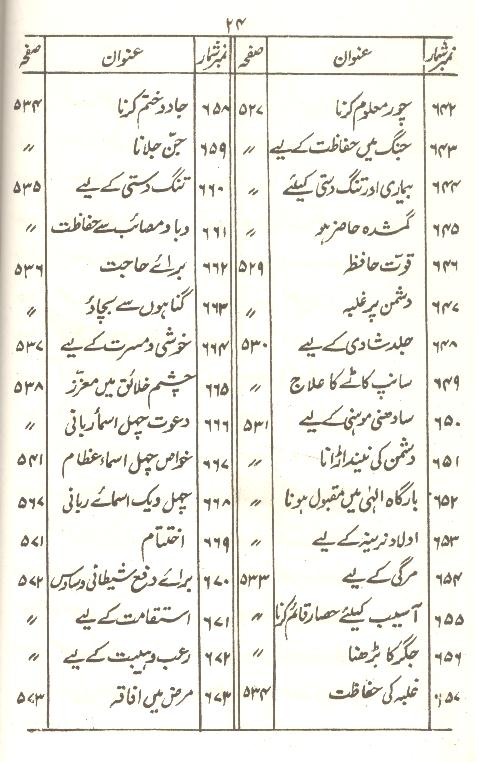 ۲۴
نمبرشمار عنوان صفحہ
۶۴۲ چور معلوم کرنا ۵۲۷
۶۴۳ جنگ میں حفاظت کے لیے 〃
۶۴۴ بیماری اور تنگ دستی کیلئے 〃
۶۴۵ گمشدہ حاضر ہو 〃
۶۴۶ قوت حافظہ ۵۲۹
۶۴۷ دشمن پر غلبہ 〃
۶۴۸ جلد شادی کے لیے ۵۳۰
۶۴۹ سانپ کاٹے کا علاج 〃
۶۵۰ سادھنی موہنی کے لیے ۵۳۱
۶۵۱ دشمن کی نیند اڑانا 〃
۶۵۲ بارگاہ الٰہی میں مقبول ہونا 〃
۶۵۳ اولاد نرینہ کے لیے 〃
۶۵۴ مرگی کے لیے ۵۳۳
۶۵۵ آسیب کیلئے حصار قائم کرنا 〃
۶۵۶ جگر کا بڑھنا 〃
۶۵۷ غلبہ کی حفاظت ۵۳۴
نمبرشمار عنوان صفحہ
۶۵۸ جادو ختم کرنا ۵۳۴
۶۵۹ جن جلانا 〃
۶۶۰ تنگ دستی کے لیے ۵۳۵
۶۶۱ وبا و مصائب سے حفاظت 〃
۶۶۲ برائے حاجت ۵۳۶
۶۶۳ گناہوں سے بچاؤ 〃
۶۶۴ خوشی و مسرت کے لیے ۵۳۷
۶۶۵ چشم خلائق میں معزز ۵۳۸
۶۶۶ دعوت چہل اسمأ ربانی 〃
۶۶۷ خواص چہل اسماء عظام ۵۴۱
۶۶۸ چہل ویک اسمائے ربانی ۵۶۷
۶۶۹ اختتام ۵۷۱
۶۷۰ برائے دفع شیطانی وساوس ۵۷۲
۶۷۱ استقامت کے لیے 〃
۶۷۲ رعب و ہیبت کے لیے 〃
۶۷۳ مرض میں افاقہ ۵۷۳